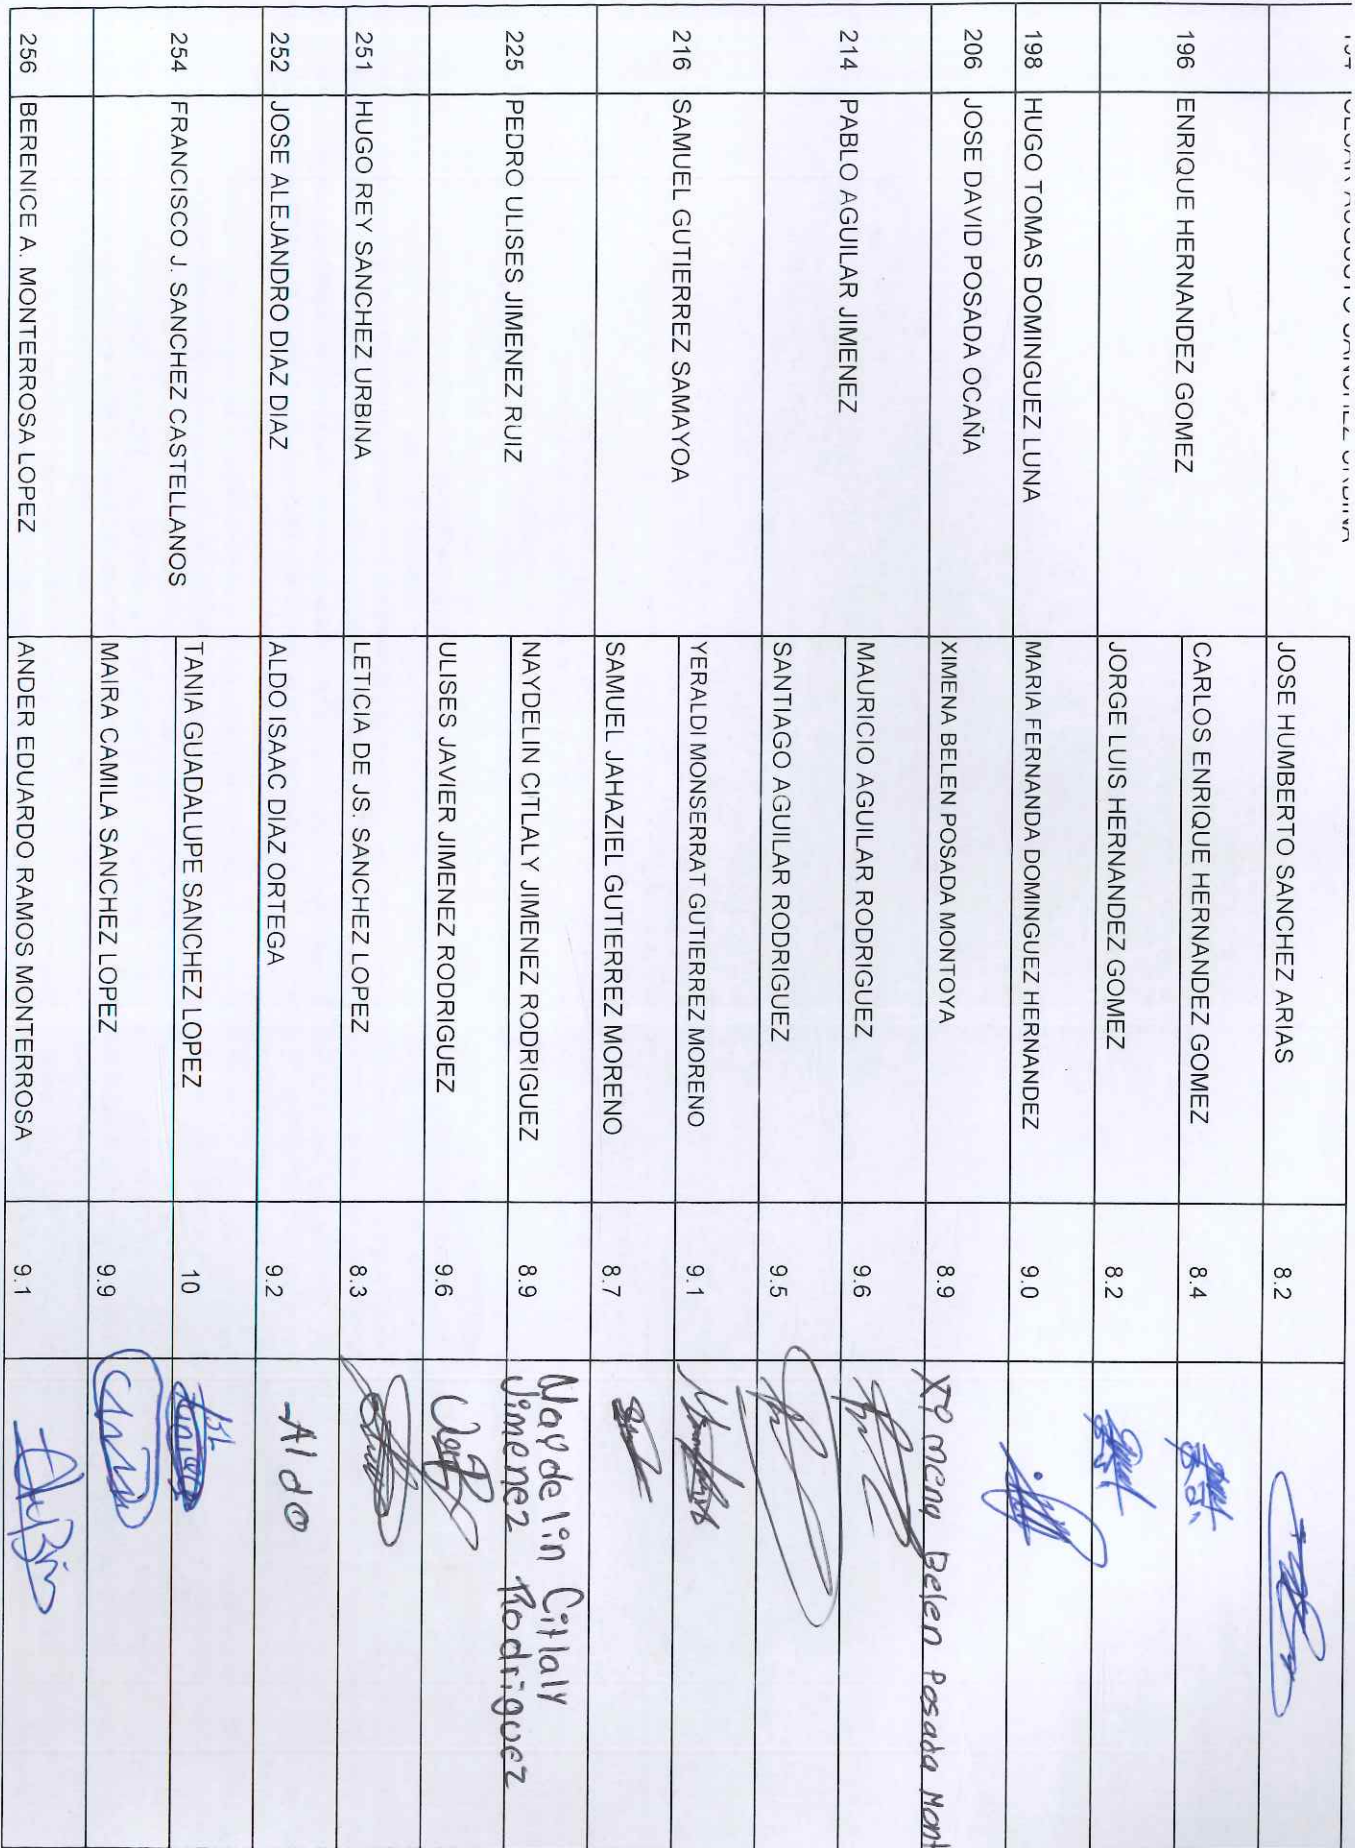 JOSE HUMBERTO SANCHEZ ARIAS 8.2
196 ENRIQUE HERNANDEZ GOMEZ CARLOS ENRIQUE HERNANDEZ GOMEZ 8.4
JORGE LUIS HERNANDEZ GOMEZ 8.2
198 HUGO TOMAS DOMINGUEZ LUNA MARIA FERNANDA DOMINGUEZ HERNANDEZ 9.0
206 JOSE DAVID POSADA OCAÑA XIMENA BELEN POSADA MONTOYA 8.9 Ximena Belen Posada Mont
214 PABLO AGUILAR JIMENEZ MAURICIO AGUILAR RODRIGUEZ 9.6
SANTIAGO AGUILAR RODRIGUEZ 9.5
216 SAMUEL GUTIERREZ SAMAYOA YERALDI MONSERRAT GUTIERREZ MORENO 9.1
SAMUEL JAHAZIEL GUTIERREZ MORENO 8.7
225 PEDRO ULISES JIMENEZ RUIZ NAYDELIN CITLALY JIMENEZ RODRIGUEZ 8.9 Naydelin Citlaly
Jimenez Rodriguez
ULISES JAVIER JIMENEZ RODRIGUEZ 9.6
251 HUGO REY SANCHEZ URBINA LETICIA DE JS. SANCHEZ LOPEZ 8.3
252 JOSE ALEJANDRO DIAZ DIAZ ALDO ISAAC DIAZ ORTEGA 9.2 Aldo
254 FRANCISCO J. SANCHEZ CASTELLANOS TANIA GUADALUPE SANCHEZ LOPEZ 10
MAIRA CAMILA SANCHEZ LOPEZ 9.9
256 BERENICE A. MONTERROSA LOPEZ ANDER EDUARDO RAMOS MONTERROSA 9.1